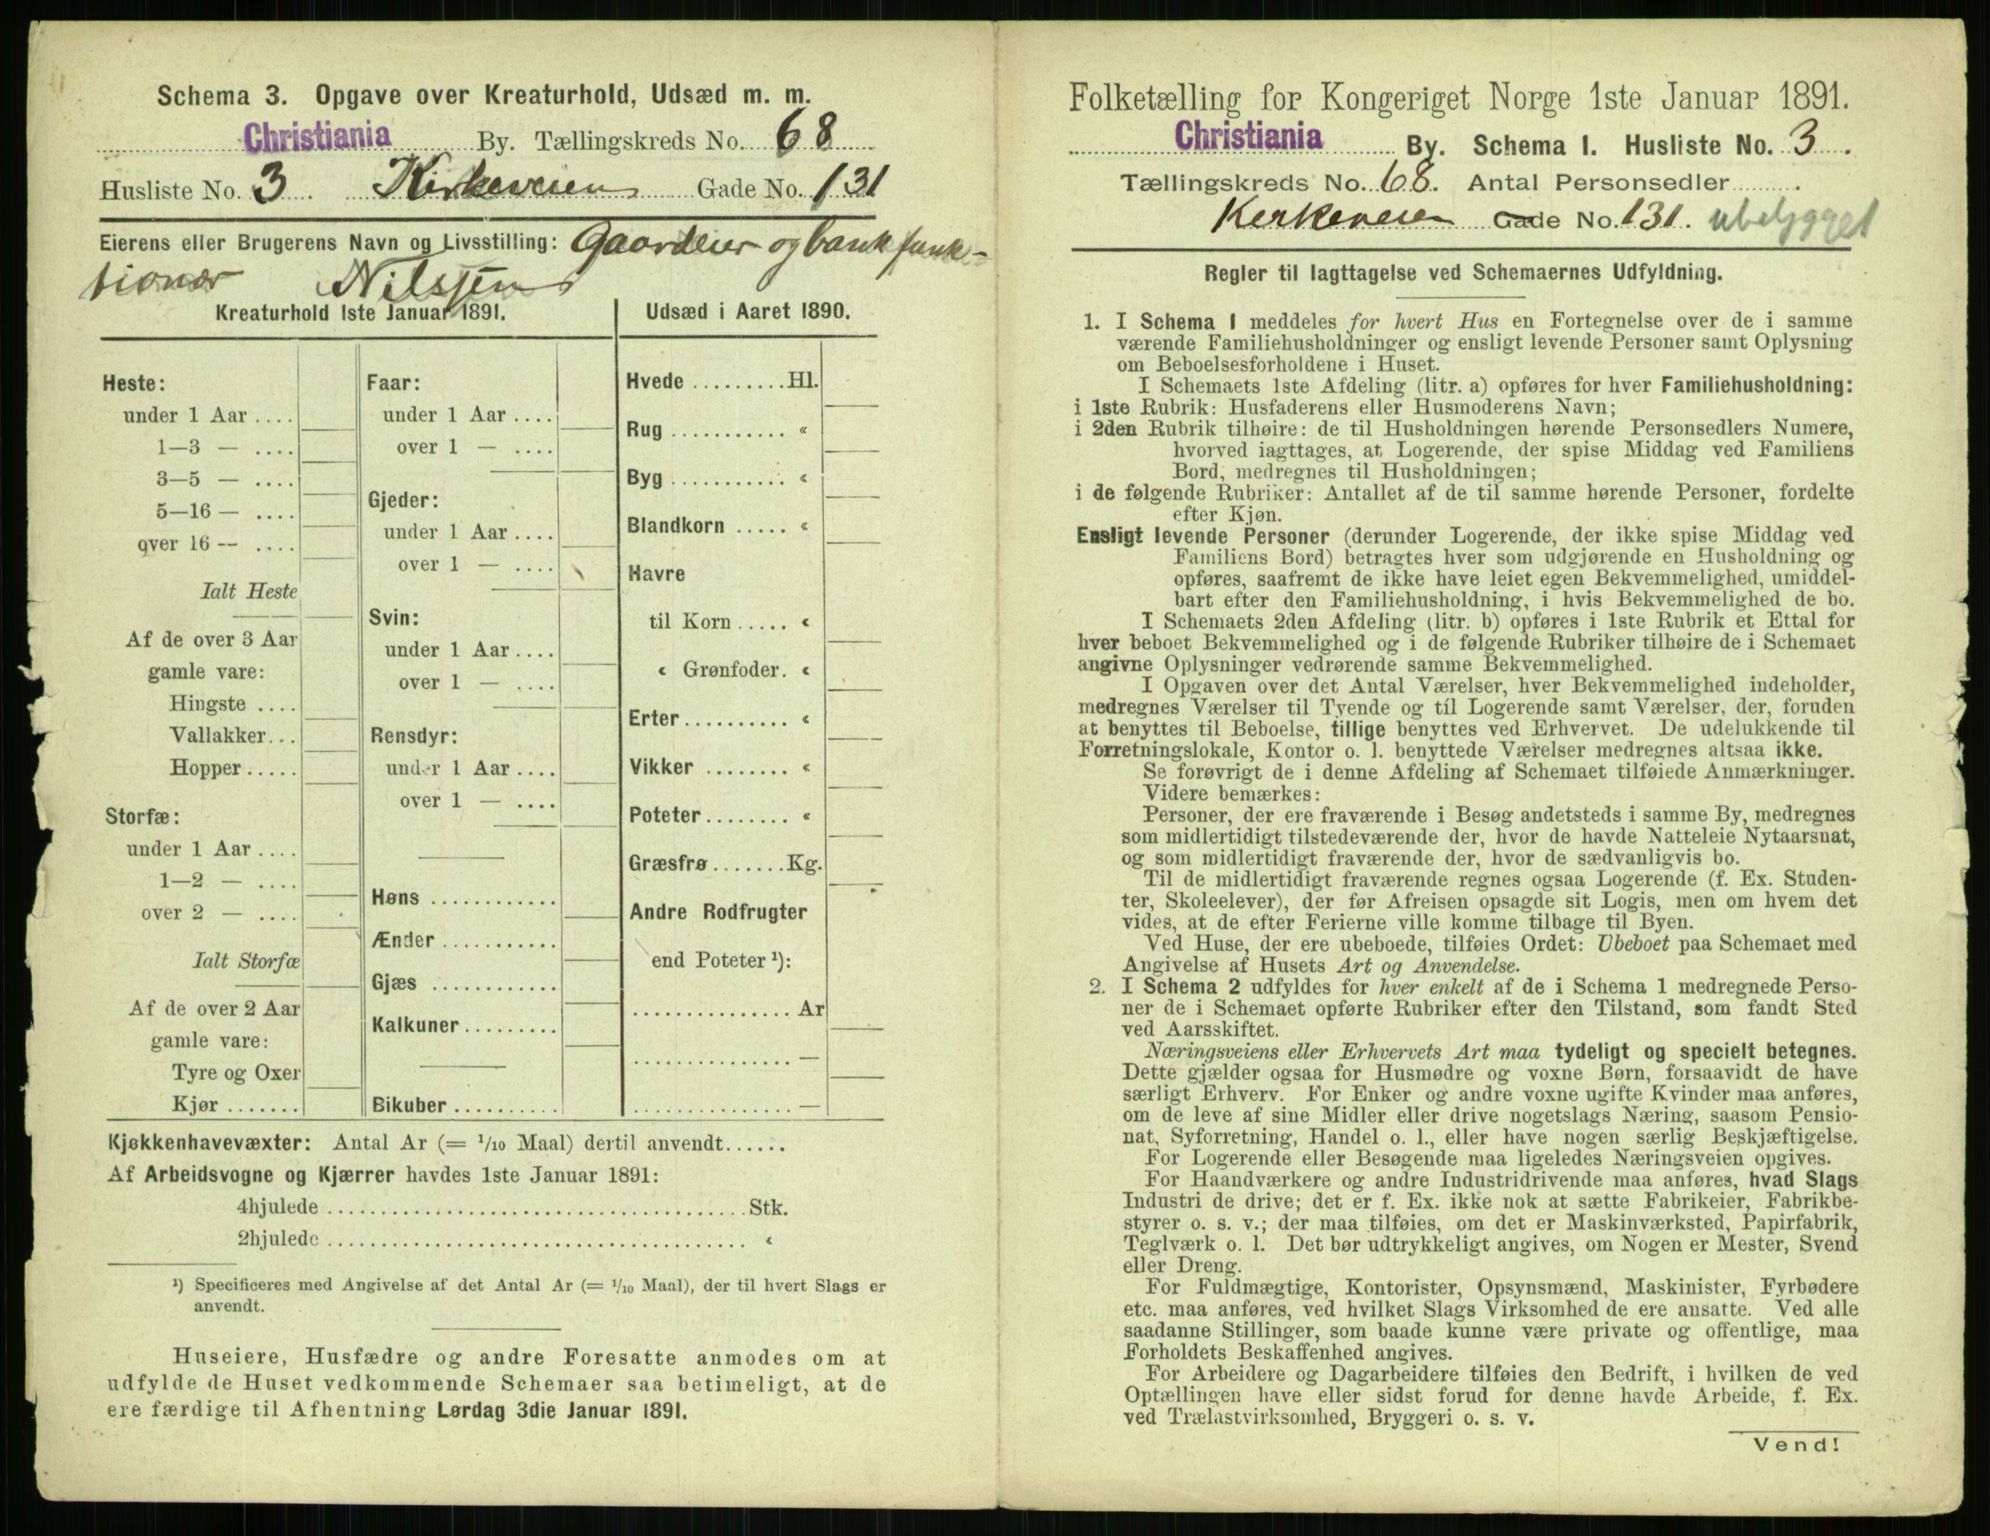 Schema 3. Opgave over Kreaturhold, Udsæd m. m.
Christiania By. Tællingskreds No. 68
Husliste No. 3 Kirkeveien Gade No. 131
Eierens eller Brugerens Navn og Livsstilling: Gaardeier og bankfunk-
tionær Nilssen
Kreaturhold 1ste Januar 1891.
Heste:
under 1 Aar ....
1—3 — ....
3—5 — ....
5—16 — ....
over 16 — ....
Ialt Heste
Af de over 3 Aar
gamle vare:
Hingste ....
Vallakker...
Hopper.....
Storfæ:
under 1 Aar ....
1—2 — ....
over 2 — ....
Ialt Storfæ
Af de over 2 Aar
gamle vare:
Tyre og Oxer
Kjør .......
Faar:
under 1 Aar ....
over 1 — ....
Gjeder:
under 1 Aar ....
over 1 — ....
Svin:
under 1 Aar ....
over 1 — ....
Rensdyr:
under 1 Aar ....
over 1 — ....
Høns ............
Ænder ...........
Gjæs ............
Kalkuner.........
Bikuber ..........
Udsæd i Aaret 1890.
Hvede .........Hl.
Rug ........... «
Byg ........... «
Blandkorn ..... «
Havre
til Korn ..... «
« Grønfoder. «
Erter.......... «
Vikker ........ «
Poteter........ «
Græsfrø .......Kg.
Andre Rodfrugter
end Poteter ¹):
............... Ar
............... —
............... —
Kjøkkenhavevæxter: Antal Ar (= 1/10 Maal) dertil anvendt......
Af Arbeidsvogne og Kjærrer havdes 1ste Januar 1891:
4hjulede ........................................ Stk.
2hjulede ........................................ «
¹) Specificeres med Angivelse af det Antal Ar (= 1/10 Maal), der til hvert Slags er
anvendt.
Huseiere, Husfædre og andre Foresatte anmodes om at
udfylde de Huset vedkommende Schemaer saa betimeligt, at de
ere færdige til Afhentning Lørdag 3die Januar 1891.
Folketælling for Kongeriget Norge 1ste Januar 1891.
Christiania By. Schema 1. Husliste No. 3.
Tællingskreds No. 68. Antal Personsedler..........
Kerkeveien Gade No. 131. ubebygget
Regler til Iagttagelse ved Schemaernes Udfyldning.
1. I Schema 1 meddeles for hvert Hus en Fortegnelse over de i samme
værende Familiehusholdninger og ensligt levende Personer samt Oplysning
om Beboelsesforholdene i Huset.
I Schemaets 1ste Afdeling (litr. a) opføres for hver Familiehusholdning:
i 1ste Rubrik: Husfaderens eller Husmoderens Navn;
i 2den Rubrik tilhøire: de til Husholdningen hørende Personsedlers Numere,
hvorved iagttages, at Logerende, der spise Middag ved Familiens
Bord, medregnes til Husholdningen;
i de følgende Rubriker: Antallet af de til samme hørende Personer, fordelte
efter Kjøn.
Ensligt levende Personer (derunder Logerende, der ikke spise Middag ved
Familiens Bord) betragtes hver som udgjørende en Husholdning og
opføres, saafremt de ikke have leiet egen Bekvemmelighed, umiddel-
bart efter den Familiehusholdning, i hvis Bekvemmelighed de bo.
I Schemaets 2den Afdeling (litr. b) opføres i 1ste Rubrik et Ettal for
hver beboet Bekvemmelighed og i de følgende Rubriker tilhøire de i Schemaet
angivne Oplysninger vedrørende samme Bekvemmelighed.
I Opgaven over det Antal Værelser, hver Bekvemmelighed indeholder,
medregnes Værelser til Tyende og til Logerende samt Værelser, der, foruden
at benyttes til Beboelse, tillige benyttes ved Erhvervet. De udelukkende til
Forretningslokale, Kontor o. l. benyttede Værelser medregnes altsaa ikke.
Se forøvrigt de i denne Afdeling af Schemaet tilføiede Anmærkninger.
Videre bemærkes:
Personer, der ere fraværende i Besøg andetsteds i samme By, medregnes
som midlertidigt tilstedeværende der, hvor de havde Natteleie Nytaarsnat,
og som midlertidigt fraværende der, hvor de sædvanligvis bo.
Til de midlertidigt fraværende regnes ogsaa Logerende (f. Ex. Studen-
ter, Skoleelever), der før Afreisen opsagde sit Logis, men om hvem det
vides, at de efter Ferierne ville komme tilbage til Byen.
Ved Huse, der ere ubeboede, tilføies Ordet: Ubeboet paa Schemaet med
Angivelse af Husets Art og Anvendelse.
2. I Schema 2 udfyldes for hver enkelt af de i Schema 1 medregnede Perso-
ner de i Schemaet opførte Rubriker efter den Tilstand, som fandt Sted
ved Aarsskiftet.
Næringsveiens eller Erhvervets Art maa tydeligt og specielt betegnes.
Dette gjælder ogsaa for Husmødre og voxne Børn, forsaavidt de have
særligt Erhverv. For Enker og andre voxne ugifte Kvinder maa anføres,
om de leve af sine Midler eller drive nogetslags Næring, saasom Pensio-
nat, Syforretning, Handel o. l., eller have nogen særlig Beskjæftigelse.
For Logerende eller Besøgende maa ligeledes Næringsveien opgives.
For Haandværkere og andre Industridrivende maa anføres, hvad Slags
Industri de drive; det er f. Ex. ikke nok at sætte Fabrikeier, Fabrikbe-
styrer o. s. v.; der maa tilføies, om det er Maskinværksted, Papirfabrik,
Teglværk o. l. Det bør udtrykkeligt angives, om Nogen er Mester, Svend
eller Dreng.
For Fuldmægtige, Kontorister, Opsynsmænd, Maskinister, Fyrbødere
etc. maa anføres, ved hvilket Slags Virksomhed de ere ansatte. Ved alle
saadanne Stillinger, som baade kunne være private og offentlige, maa
Forholdets Beskaffenhed angives.
For Arbeidere og Dagarbeidere tilføies den Bedrift, i hvilken de ved
Optællingen have eller sidst forud for denne havde Arbeide, f. Ex.
ved Trælastvirksomhed, Bryggeri o. s. v.
Vend!